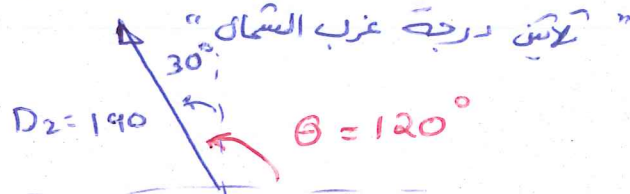 " ثلاثين درجة غرب الشمال "
30°
D₂=190
θ = 120°